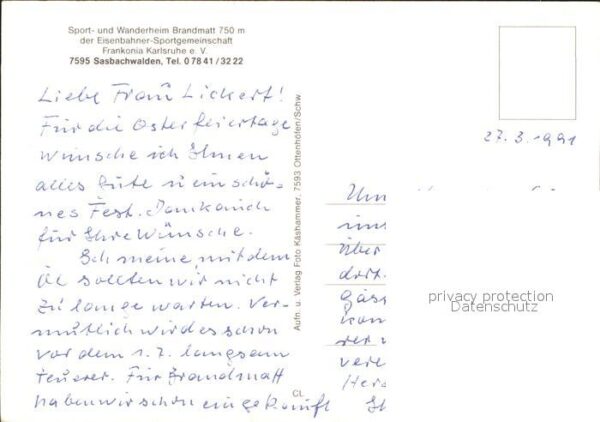 Sport- und Wanderheim Brandmatt 750 m
der Eisenbahner-Sportgemeinschaft
Frankonia Karlsruhe e. V.
7595 Sasbachwalden, Tel. 0 78 41 / 32 22
Liebe Frau Lickert!
Für die Osterfeiertage
wünsche ich Ihnen
alles Gute u ein schö-
nes Fest. Dank auch
für Ihre Wünsche.
Ich meine, mit dem
Öl sollten wir nicht
zu lange warten. Ver-
mutlich wird es schon
vor dem 1.7. langsam
teuerer. Für Brandmatt
haben wir schon eingekauft
Aufn. u. Verlag Foto Käshammer, 7593 Ottenhöfen/Schw
CL
27.3.1991
über
dort.
gäs
kon
rer
vere
privacy protection
Datenschutz